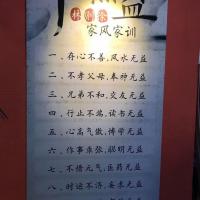 益
林则徐
家风家训
一、存心不善，风水无益
二、不孝父母，奉神无益
三、兄弟不和，交友无益
四、行止不端，读书无益
五、心高气傲，博学无益
六、作事乖张，聪明无益
七、不惜元气，医药无益
八、时运不济，妄求无益